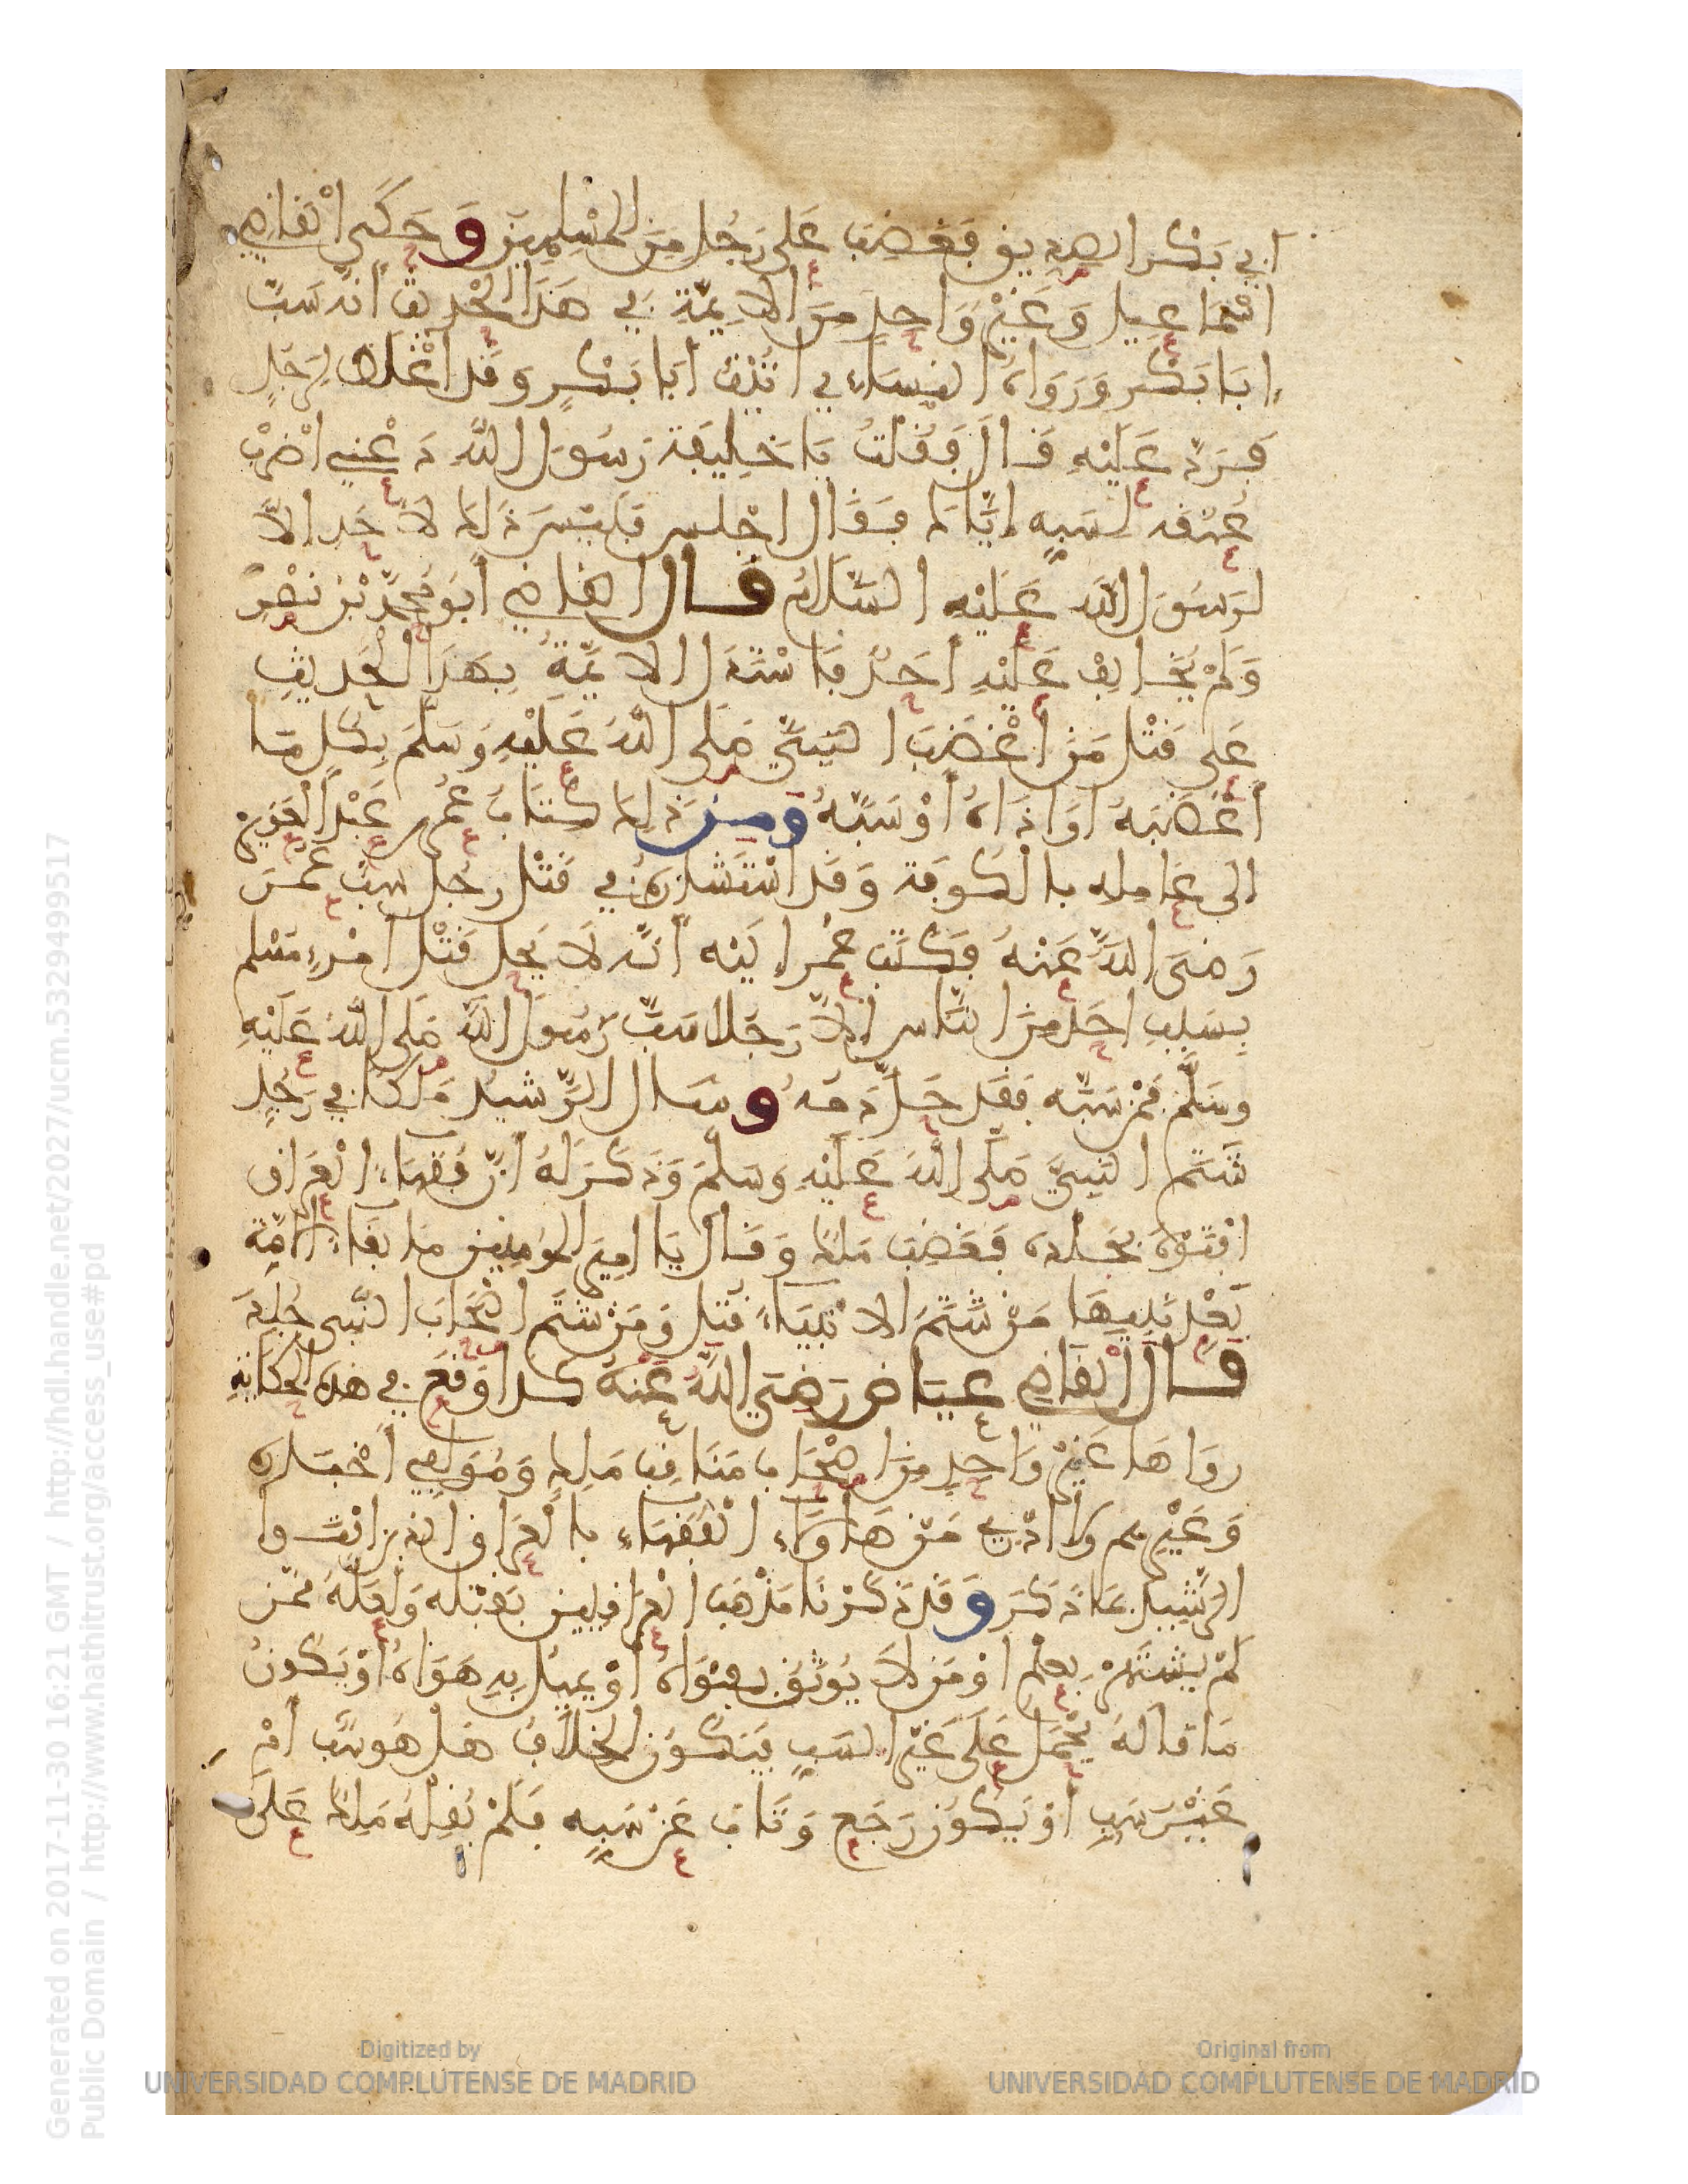 أبي بَكْر الصديق فغضب عَلى رَجُل مِنَ المُسْلِمِينَ وَحَكَى القاضي
اسْمَاعيل وَغَيْر وَاحِدٍ مِنَ الايمّة في هَذَا الْحَديث أنه سَبّ
ابَا بَكْر وَرَوَاهُ النسَاءي أتَيْتُ أبَا بَكْرٍ وَقد اغْلَظ لِرَجُلٍ
فَرَدّ عَلَيْهِ قَالَ فَقُلْتُ يَا خَلِيفة رَسُول اللهِ دَعْنِي اضْرِبْ
عُنْقه لسَبِهِ إيَّاكَ فَقَال اجْلِس فَلَيْسَ ذَلِكَ لاحَد الاّ
لرَسُول اللهِ عَلَيْهِ السَّلَامُ قال القاضي أبُو مُحَمَّد بْن نصْرٍ
وَلَمْ يُخَالِفْ عَلَيْهِ أحَدٌ فاسْتَدَلّ الايمّةُ بِهَذَا الْحَدِيثِ
عَلى قَتْل مَن أغْضَبَ النَّبِيَّ صَلى اللهُ عَلَيْهِ وَسَلَّمَ بِكُل مَا
أغْضَبَهُ اوَاذَاهُ أوْ سَبَّهُ ومِن ذَلِكَ كِتَابُ عُمَر بن عَبْد الْعَزِيزِ
الى عَامِلِه بالْكُوفَة وَقَد اسْتَشَارَهُ في قَتْل رجُل سبّ عُمَرَ
رَضيَ اللهُ عَنْهُ فكَتَبَ عُمَر إليْه أنّه لَا يَحِل قَتْل امْرءٍ مُسْلِم
بِسَبِّ احَدٍ مِنَ النَّاس إلّا رَجُلا سَبَّ رَسُولَ اللهِ صَلى اللهُ عَلَيْهِ
وسَلَّم فَمَن سَبَّه فَقَد حَلّ دَمُهُ وسَال الرَّشيدُ مَالكا في رَجُلٍ
شَتَم النَبِيَّ صَلَّى اللهُ عَلَيْهِ وَسَلَّمَ وَذَكَرَ لَهُ أنّ فُقَهَاءَ الْعِرَاق
افْتَوْهُ بِجَلْدِه فَغَضِبَ مَالِكٌ وَقَال يَا امِيرَ المُومِنِين مَا بَقَاءُ الامَّةِ
بَعْدَ نَبِيهَا مَنْ شَتَمَ الانْبيَاءَ قُتِلَ وَمَنْ شَتَم اصْحَابَ النَّبِي جُلِدَ
قال القَاضِي عِيَاض رَضيَ اللهُ عَنْهُ كذا وَقَعَ في هذه الْحِكَايَةِ
رَوَاهَا غَيْر وَاحِدٍ مِنْ اصْحَاب مَنَاقِب مَالِكٍ وَمُوَلِفِي أخْبَارِه
وَغَيْرِهِم وَلا ادْرِي مَنْ هَاوُلَاءِ الْفُقَهَاءِ بالْعِرَاق الذِين افْتَوا
الرَّشِيد بِمَا ذَكَرَ وَقَد ذَكَرْنَا مَذْهَبَ الْعِرَاقِيين بِقَتْلِه وَلَعَلَّهُ مِمّن
لَمْ يشْتَهِرْ بِعِلْم اوْ مَن لَا يُوثَقُ بِفَتْوَاهُ أوْ يمِيلُ بِهِ هَوَاهُ أوْ يَكُون
مَا قَالَهُ يُحْمَلُ عَلَى غَيْر السَبِ فَيَكُون الْخِلَافُ هَلْ هُو سَب أمْ
غَيْر سَبٍ أوْ يَكُون رَجَعَ وَتَابَ عَنْ سَبِهِ فَلَمْ يَقُلْهُ مَالِكٌ عَلَى
Generated on 2017-11-30 16:21 GMT / http://hdl.handle.net/2027/ucm.5329499517
Public Domain / http://www.hathitrust.org/access_use#pd
Digitized by
UNIVERSIDAD COMPLUTENSE DE MADRID
Original from
UNIVERSIDAD COMPLUTENSE DE MADRID